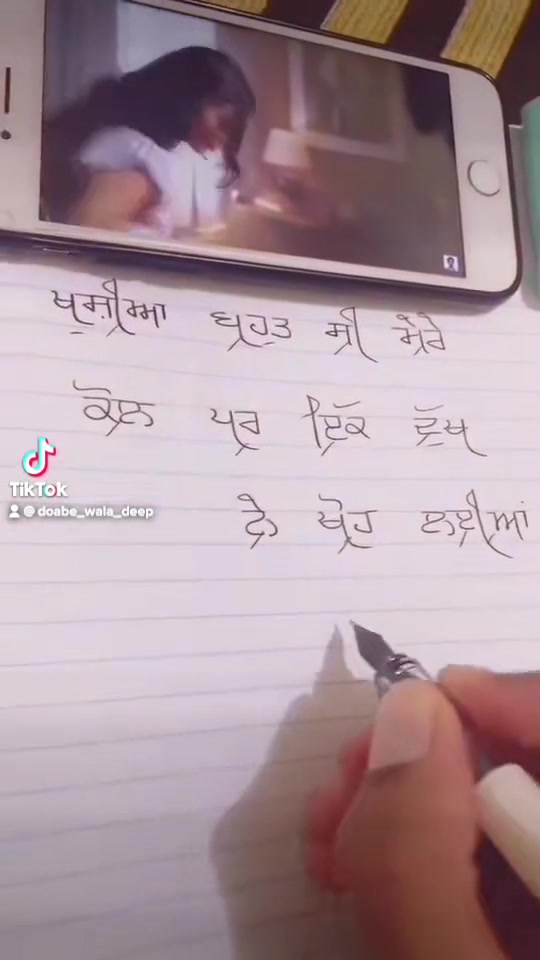 ਖੁਸ਼ੀਆ ਬਹੁਤ ਸੀ ਮੇਰੇ
ਕੋਲ ਪਰ ਇੱਕ ਦੁੱਖ
ਨੇ ਖੋਹ ਲਈਆਂ
TikTok
@doabe_wala_deep